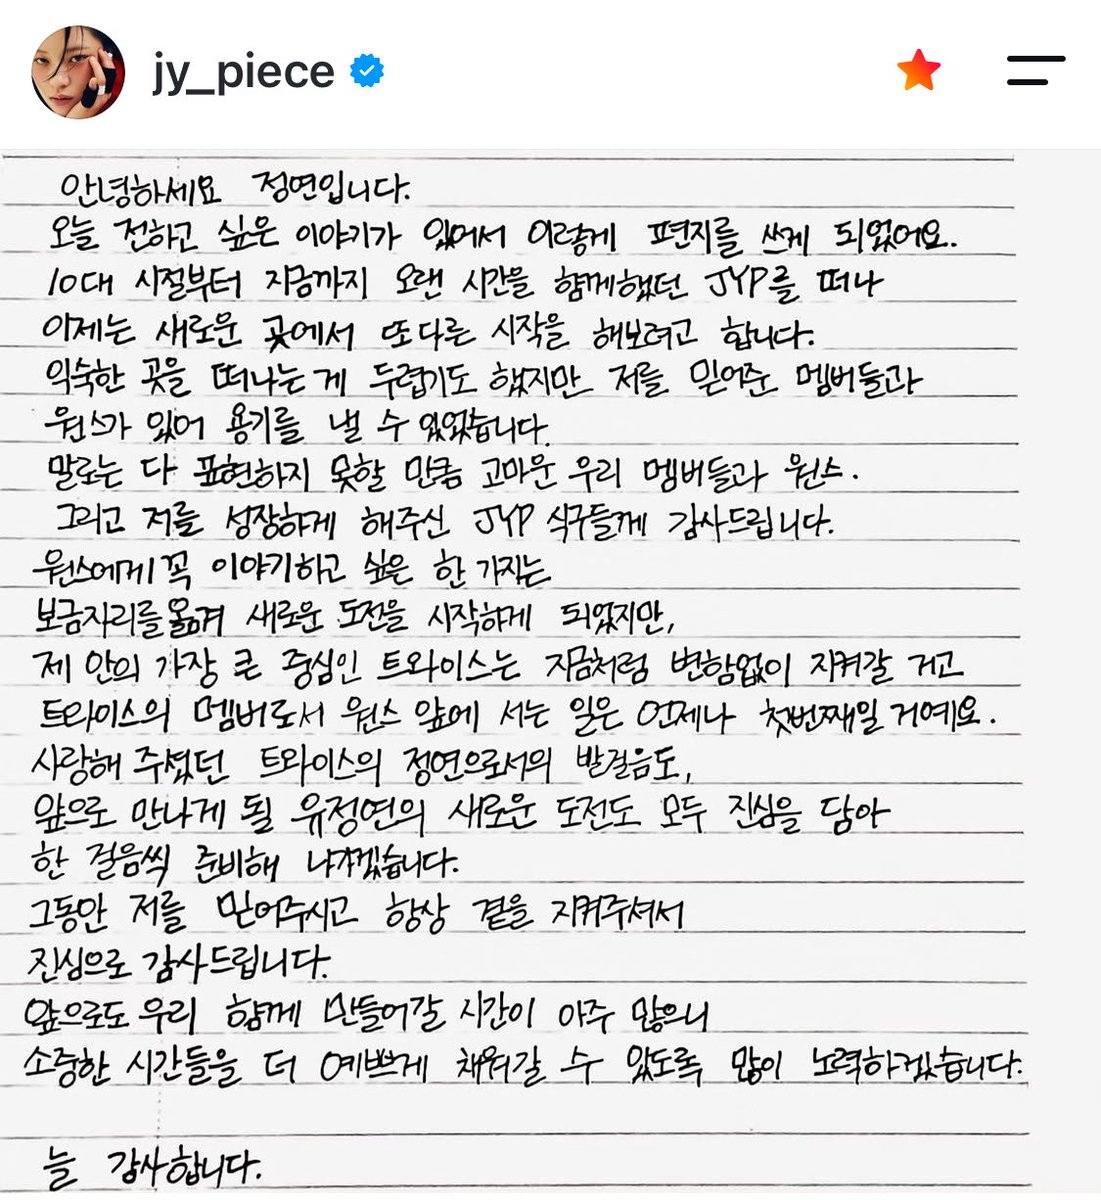 jy_piece
안녕하세요 정연입니다.
오늘 전하고 싶은 이야기가 있어서 이렇게 편지를 쓰게 되었어요.
10대 시절부터 지금까지 오랜 시간을 함께했던 JYP를 떠나
이제는 새로운 곳에서 또 다른 시작을 해보려고 합니다.
익숙한 곳을 떠나는 게 두렵기도 했지만 저를 믿어준 멤버들과
원스가 있어 용기를 낼 수 있었습니다.
말로는 다 표현하지 못할 만큼 고마운 우리 멤버들과 원스.
그리고 저를 성장하게 해주신 JYP 식구들께 감사드립니다.
원스에게 꼭 이야기하고 싶은 한 가지는
보금자리를 옮겨 새로운 도전을 시작하게 되었지만,
제 안의 가장 큰 중심인 트와이스는 지금처럼 변함없이 지켜갈 거고
트와이스의 멤버로서 원스 앞에 서는 일은 언제나 첫번째일 거예요.
사랑해 주셨던 트와이스의 정연으로서의 발걸음도,
앞으로 만나게 될 유정연의 새로운 도전도 모두 진심을 담아
한 걸음씩 준비해 나가겠습니다.
그동안 저를 믿어주시고 항상 곁을 지켜주셔서
진심으로 감사드립니다.
앞으로도 우리 함께 만들어갈 시간이 아주 많으니
소중한 시간들을 더 예쁘게 채워갈 수 있도록 많이 노력하겠습니다.
늘 감사합니다.